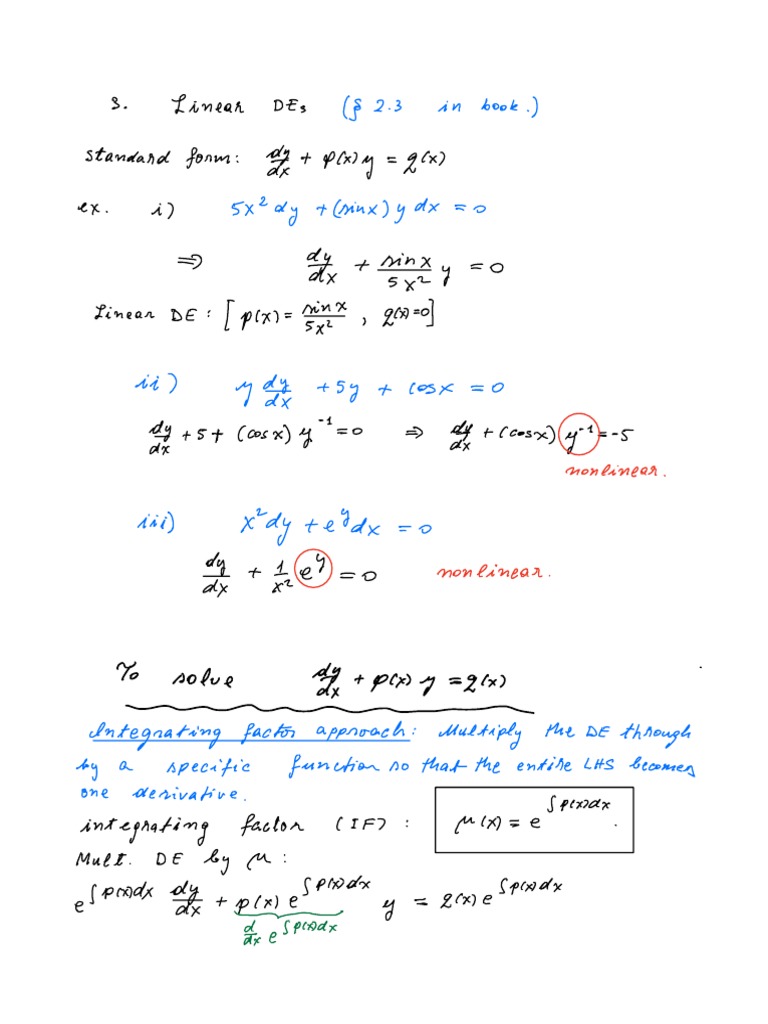 3. Linear DEs (§ 2.3 in book.)
standard form: dy/dx + p(x) y = q(x)
ex. i) 5x² dy + (sinx) y dx = 0
⇒ dy/dx + sinx/5x² y = 0
Linear DE: [p(x) = sinx/5x², q(x)=0]
ii) y dy/dx + 5y + cosx = 0
dy/dx + 5 + (cosx) y⁻¹ = 0 ⇒ dy/dx + (cosx) y⁻¹ = -5
nonlinear.
iii) x² dy + e^y dx = 0
dy/dx + 1/x² e^y = 0 nonlinear.
To solve dy/dx + p(x) y = q(x)
Integrating factor approach: Multiply the DE through
by a specific function so that the entire LHS becomes
one derivative.
integrating factor (IF): μ(x) = e^∫p(x)dx.
Mult. DE by μ:
e^∫p(x)dx dy/dx + p(x) e^∫p(x)dx y = q(x) e^∫p(x)dx
d/dx e^∫p(x)dx